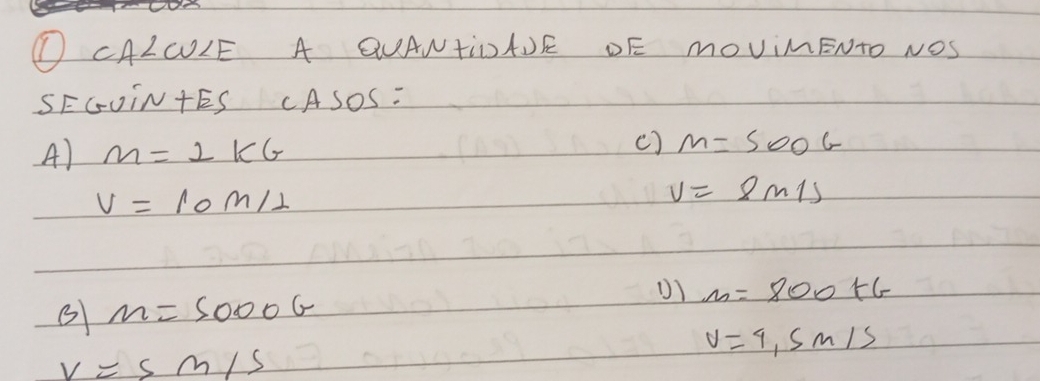 ① CALCULE A QUANTIDADE DE MOVIMENTO NOS
SEGUINTES CASOS:
A) m = 2 KG
V = 10 M/S
B) m = 5000 G
V = 5 M/S
C) m = 500 G
V = 8 m/S
D) m = 800 KG
V = 9,5 m/S